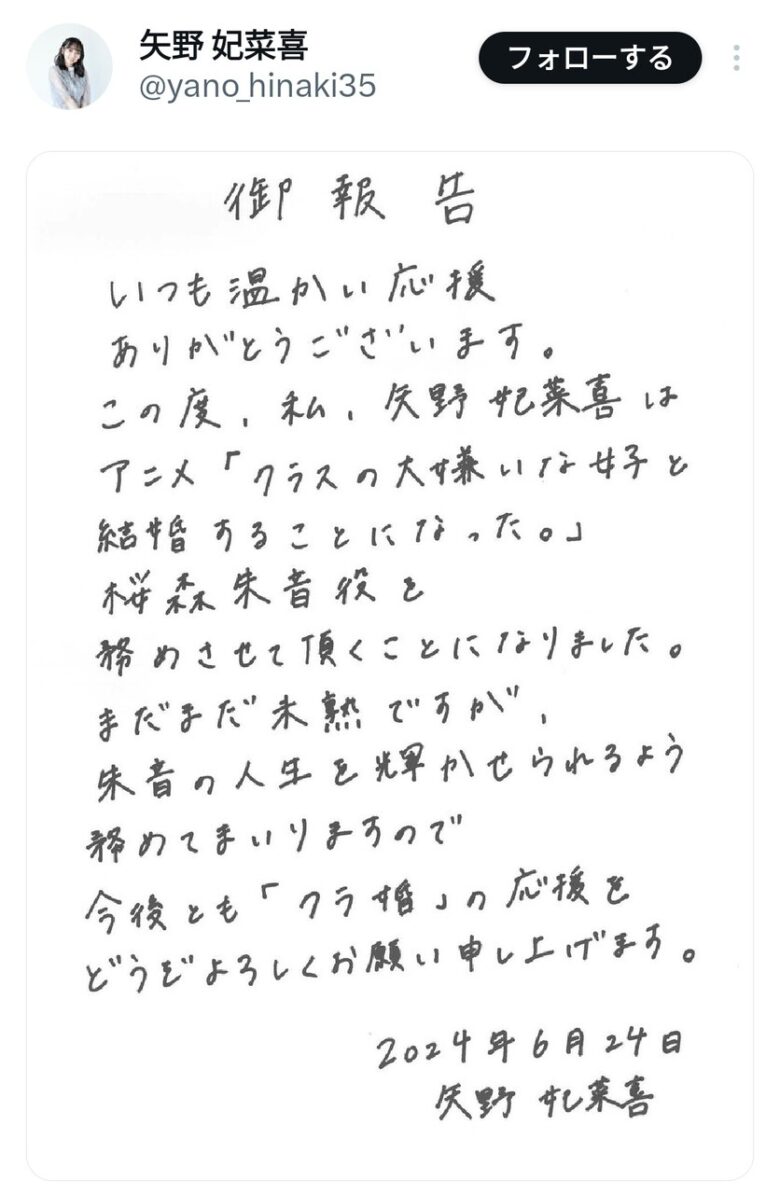 矢野 妃菜喜
@yano_hinaki35
フォローする
御報告
いつも温かい応援
ありがとうございます。
この度、私、矢野妃菜喜は
アニメ「クラスの大嫌いな女子と
結婚することになった。」
桜森朱音役を
務めさせて頂くことになりました。
まだまだ未熟ですが、
朱音の人生を輝かせられるよう
務めてまいりますので
今後とも「クラ婚」の応援を
どうぞよろしくお願い申し上げます。
2024年6月24日
矢野 妃菜喜